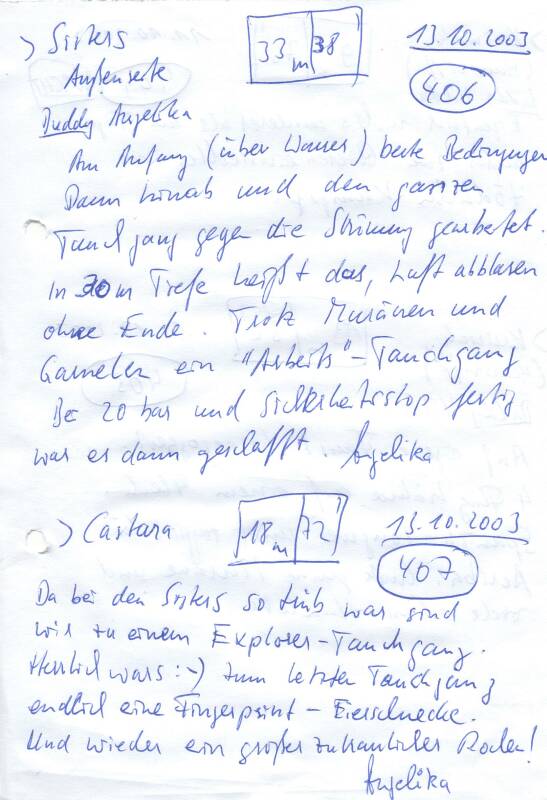 > Sisters 33 m 38' 13.10.2003
Außenseite 406
Buddy Angelika
Am Anfang (über Wasser) beste Bedingungen
Dann hinab und den ganzen
Tauchgang gegen die Strömung gearbeitet.
In 30m Tiefe heißt das, Luft abblasen
ohne Ende. Trotz Muränen und
Garnelen ein "Arbeits"-Tauchgang
Bei 20 bar und Sicherheitsstop fertig
war es dann geschafft. Angelika
> Castara 18 m 72' 13.10.2003
407
Da bei den Sisters so trüb war sind
wir zu einem Explorer-Tauchgang.
Herrlich wars :-) Zum letzten Tauchgang
endlich eine Fingerprint-Eierschnecke.
Und wieder ein großer zutraulicher Rochen!
Angelika